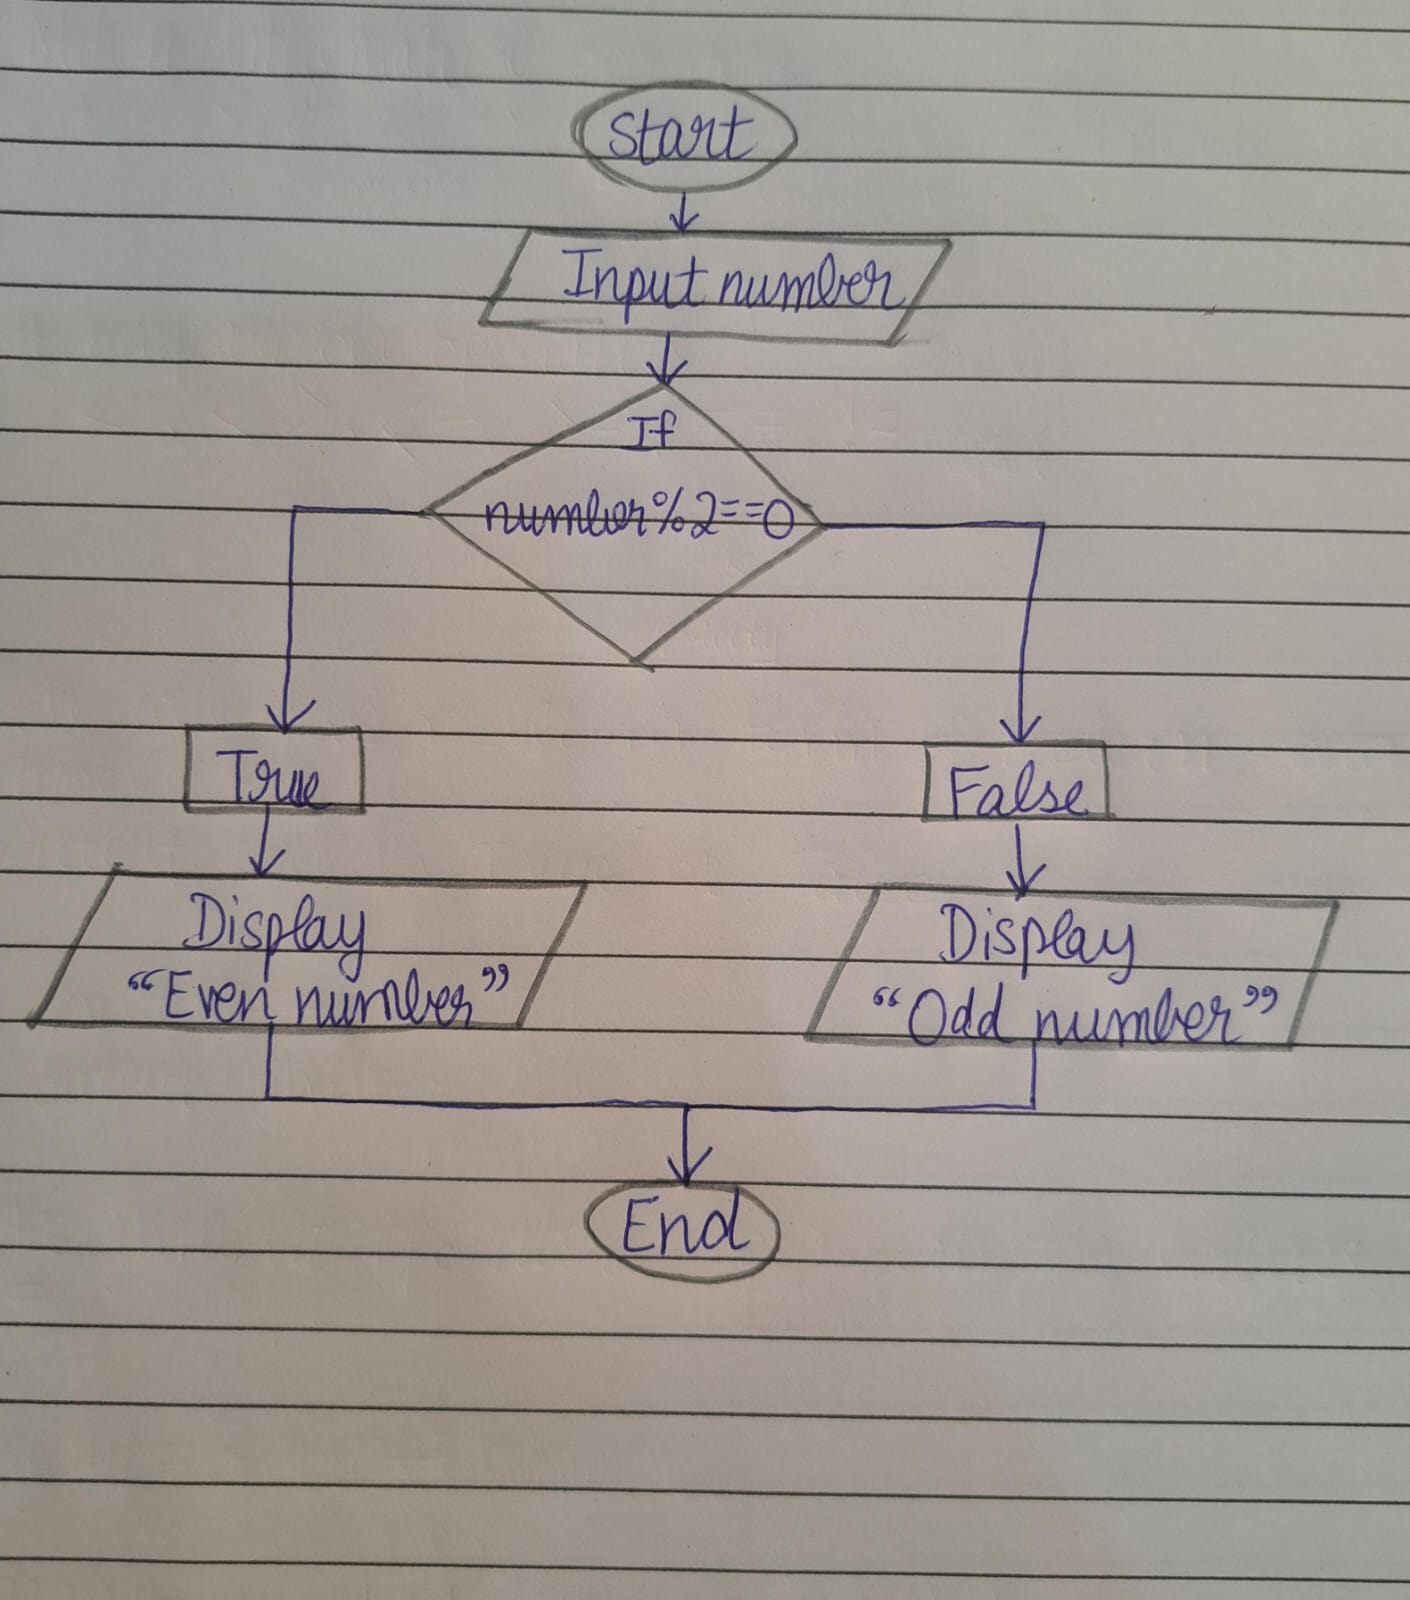 Start
Input number
If
number%2==0
True
False
Display
“Even number”
Display
“Odd number”
End